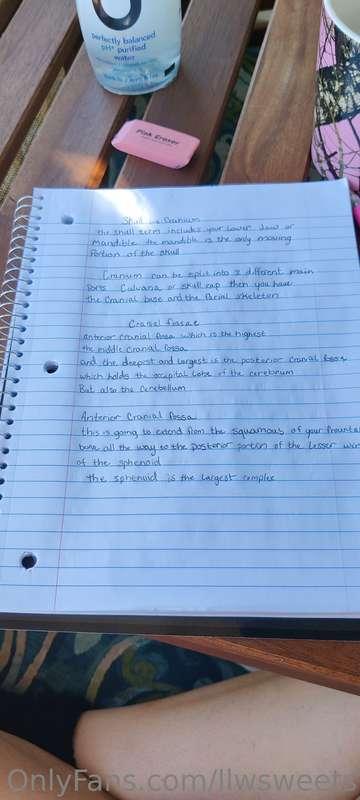 perfectly balanced
pH⁺ purified
water
Pink Eraser
Skull vs Cranium
the skull term includes your lower Jaw or
Mandible the mandible is the only moving
Portion of the skull
Cranium can be split into 2 different main
parts Calvaria or skull cap then you have
the cranial base and the facial skeleton
Cranial fossae
anterior cranial fossa which is the highest
the middle cranial fossa
and the deepest and largest is the posterior cranial fossa
which holds the occipital lobe of the cerebrum
But also the Cerebellum
Anterior Cranial fossa
this is going to extend from the squamous of your frontal
bone all the way to the posterior portion of the lesser win
of the sphenoid
the sphenoid is the largest complex
OnlyFans.com/llwsweets